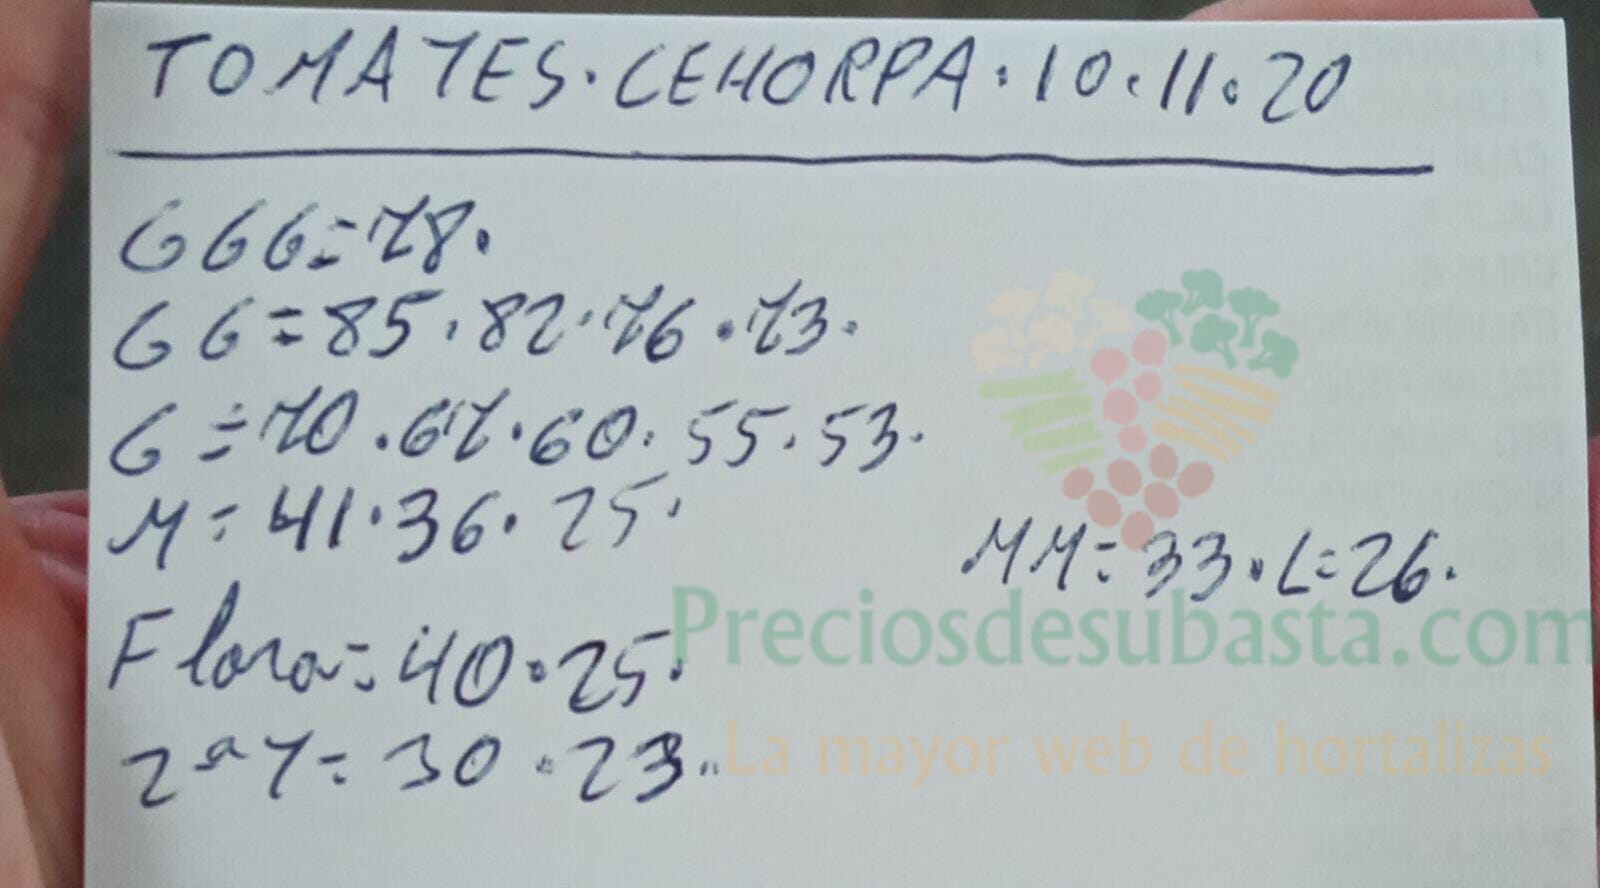 TOMATES·CEHORPA·10·11·20
GGG=78.
GG=85·82·76·73.
G=70·67·60·55·53.
M=41·36·25.
MM=33·L=26.
Flora=40·25.
Preciosdesubasta.com
2ªY=30·23..
La mayor web de hortalizas